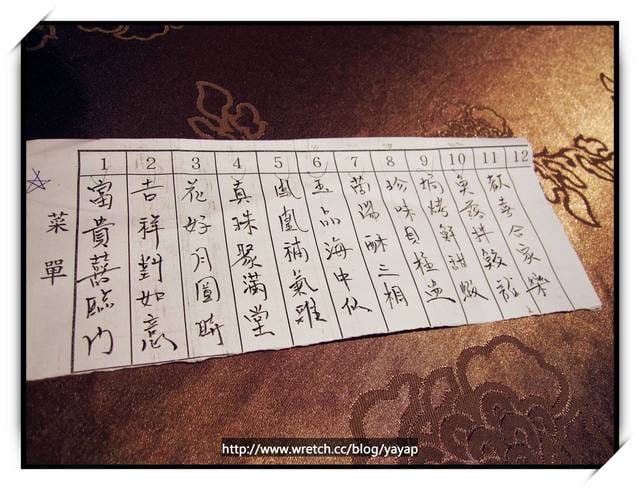 菜單
1 2 3 4 5 6 7 8 9 10 11 12
富貴臨門
吉祥對如意
花好月圓時
真珠聚滿堂
鳳凰補氣雞
玉品海中仙
湯酥三相
珍味貝極
焗烤鮮甜蝦
魚拌餃
歡喜合家樂
http://www.wretch.cc/blog/yayap